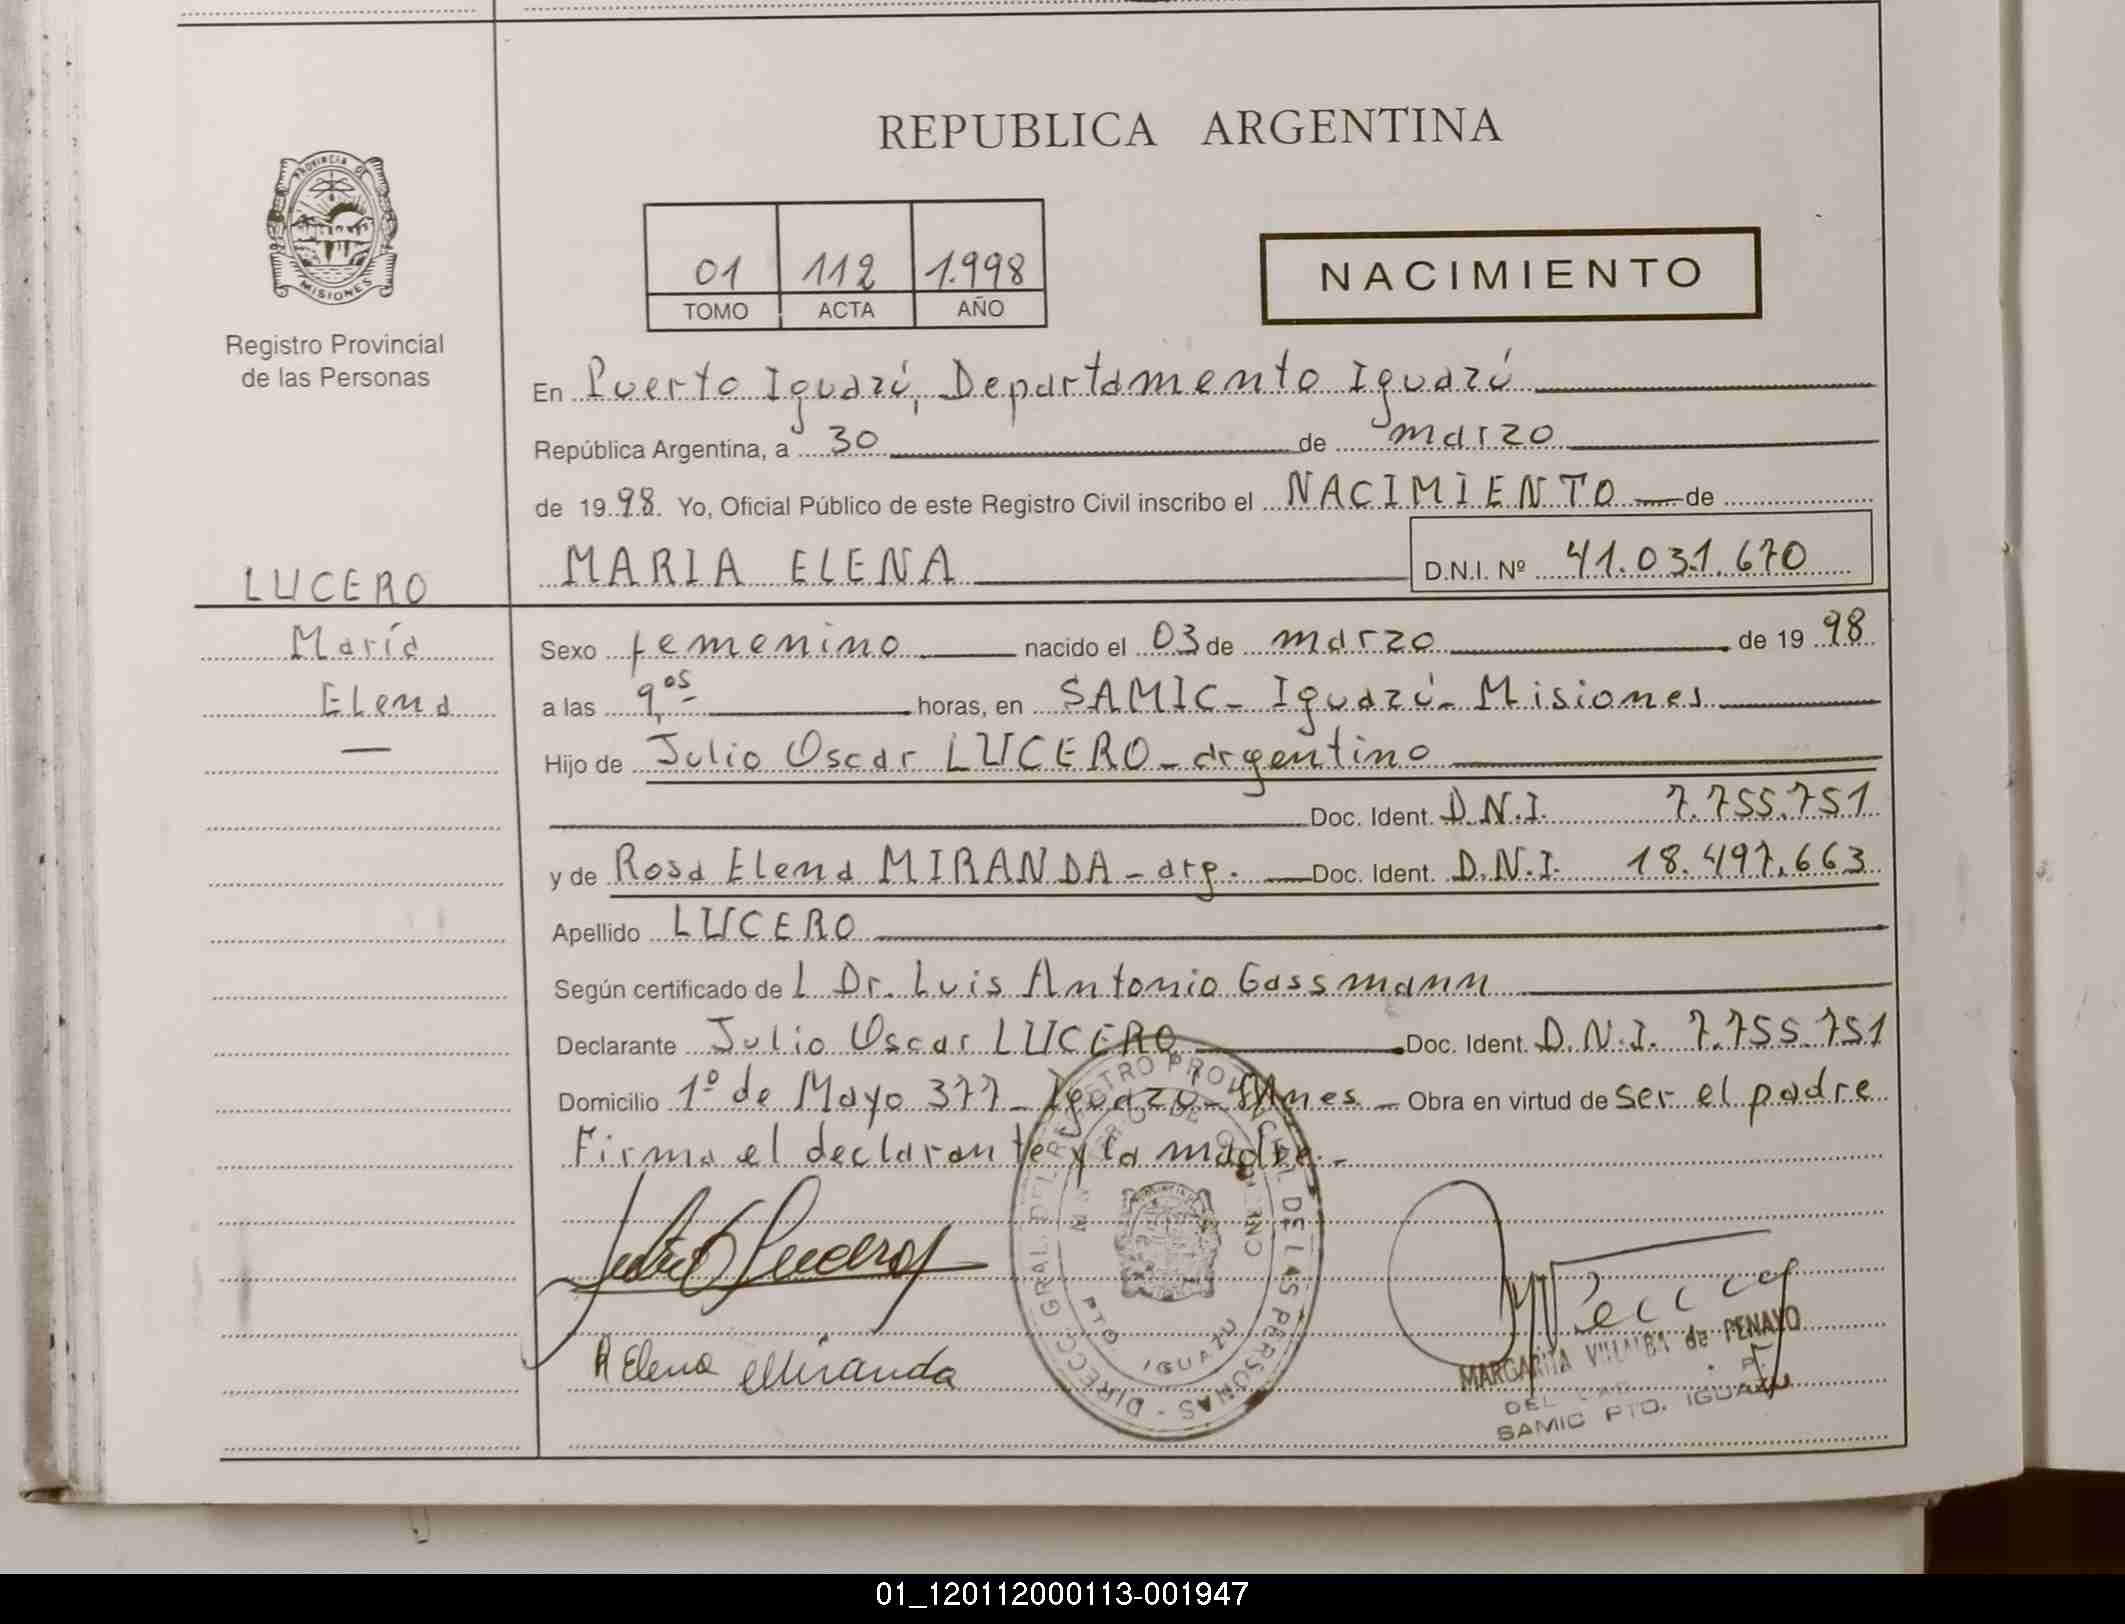 REPUBLICA ARGENTINA
PROVINCIA DE MISIONES
Registro Provincial
de las Personas
01 112 1.998
TOMO ACTA AÑO
NACIMIENTO
En Puerto Iguazú, Departamento Iguazú
República Argentina, a 30 de marzo
de 1998. Yo, Oficial Público de este Registro Civil inscribo el NACIMIENTO de
LUCERO
MARIA ELENA D.N.I. Nº 41.031.670
María
Sexo femenino nacido el 03 de marzo de 19 98
Elena
a las 9,05 horas, en SAMIC - Iguazú - Misiones
Hijo de Julio Oscar LUCERO - argentino
Doc. Ident. D.N.I. 7.755.751
y de Rosa Elena MIRANDA - arg. Doc. Ident. D.N.I. 18.497.663
Apellido LUCERO
Según certificado de L Dr. Luis Antonio Gassmann
Declarante Julio Oscar LUCERO Doc. Ident. D.N.I. 7.755.751
Domicilio 1º de Mayo 377 - Iguazú - Mnes - Obra en virtud de ser el padre
Firma el declarante y la madre.-
DIRECC. GRAL. DEL REGISTRO PROVINCIAL DE LAS PERSONAS -
PTO IGUAZU
R Elena Miranda
MARGARITA VILLALBA de PENAYO
SAMIC PTO. IGUAZU
01_120112000113-001947